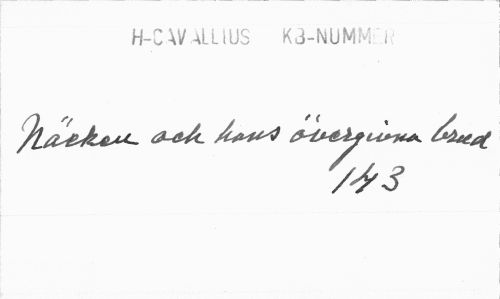 H-CAVALLIUS KB-NUMMER
Näcken och hans övergivna brud
143